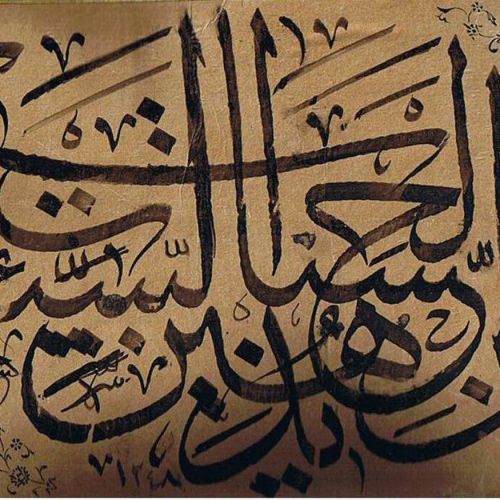 إن الحسنات يذهبن السيئات
١٢٤٨